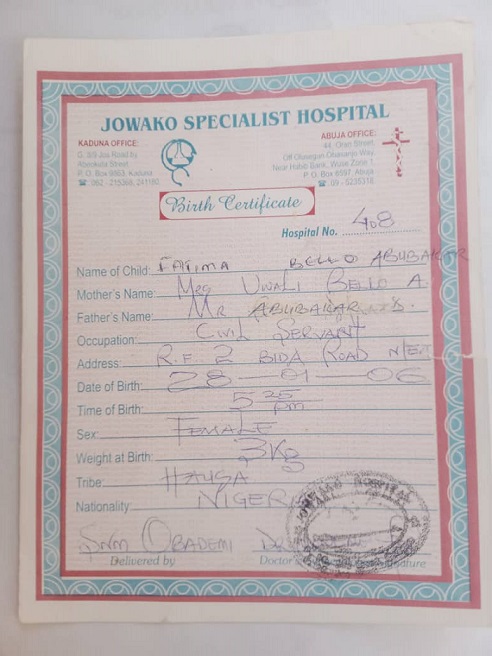 JOWAKO SPECIALIST HOSPITAL
KADUNA OFFICE:
G. 3/9 Jos Road by
Ribadu Street
P. O. Box 9963, Kaduna
☎: 062 - 215368, 241182
ABUJA OFFICE:
44, Oran Street,
Off Olusegun Obasanjo Way,
Near Habib Bank, Wuse Zone 1,
P. O. Box 8597, Abuja
☎: 09 - 5235318
Birth Certificate
Hospital No. 408
Name of Child: FATIMA BELLO ABUBAKAR
Mother's Name: Mrs UWALI BELLO A.
Father's Name: Mr ABUBAKAR
Occupation: CIVIL SERVANT
Address: R.F. 2 BIDA ROAD
Date of Birth: 28 — 01 — 06
Time of Birth: 5 25 pm
Sex: FEMALE
Weight at Birth: 3Kg
Tribe: HAUSA
Nationality: NIGER
JOWAKO HOSPITAL
OBADEMI
Delivered by
Doctor's